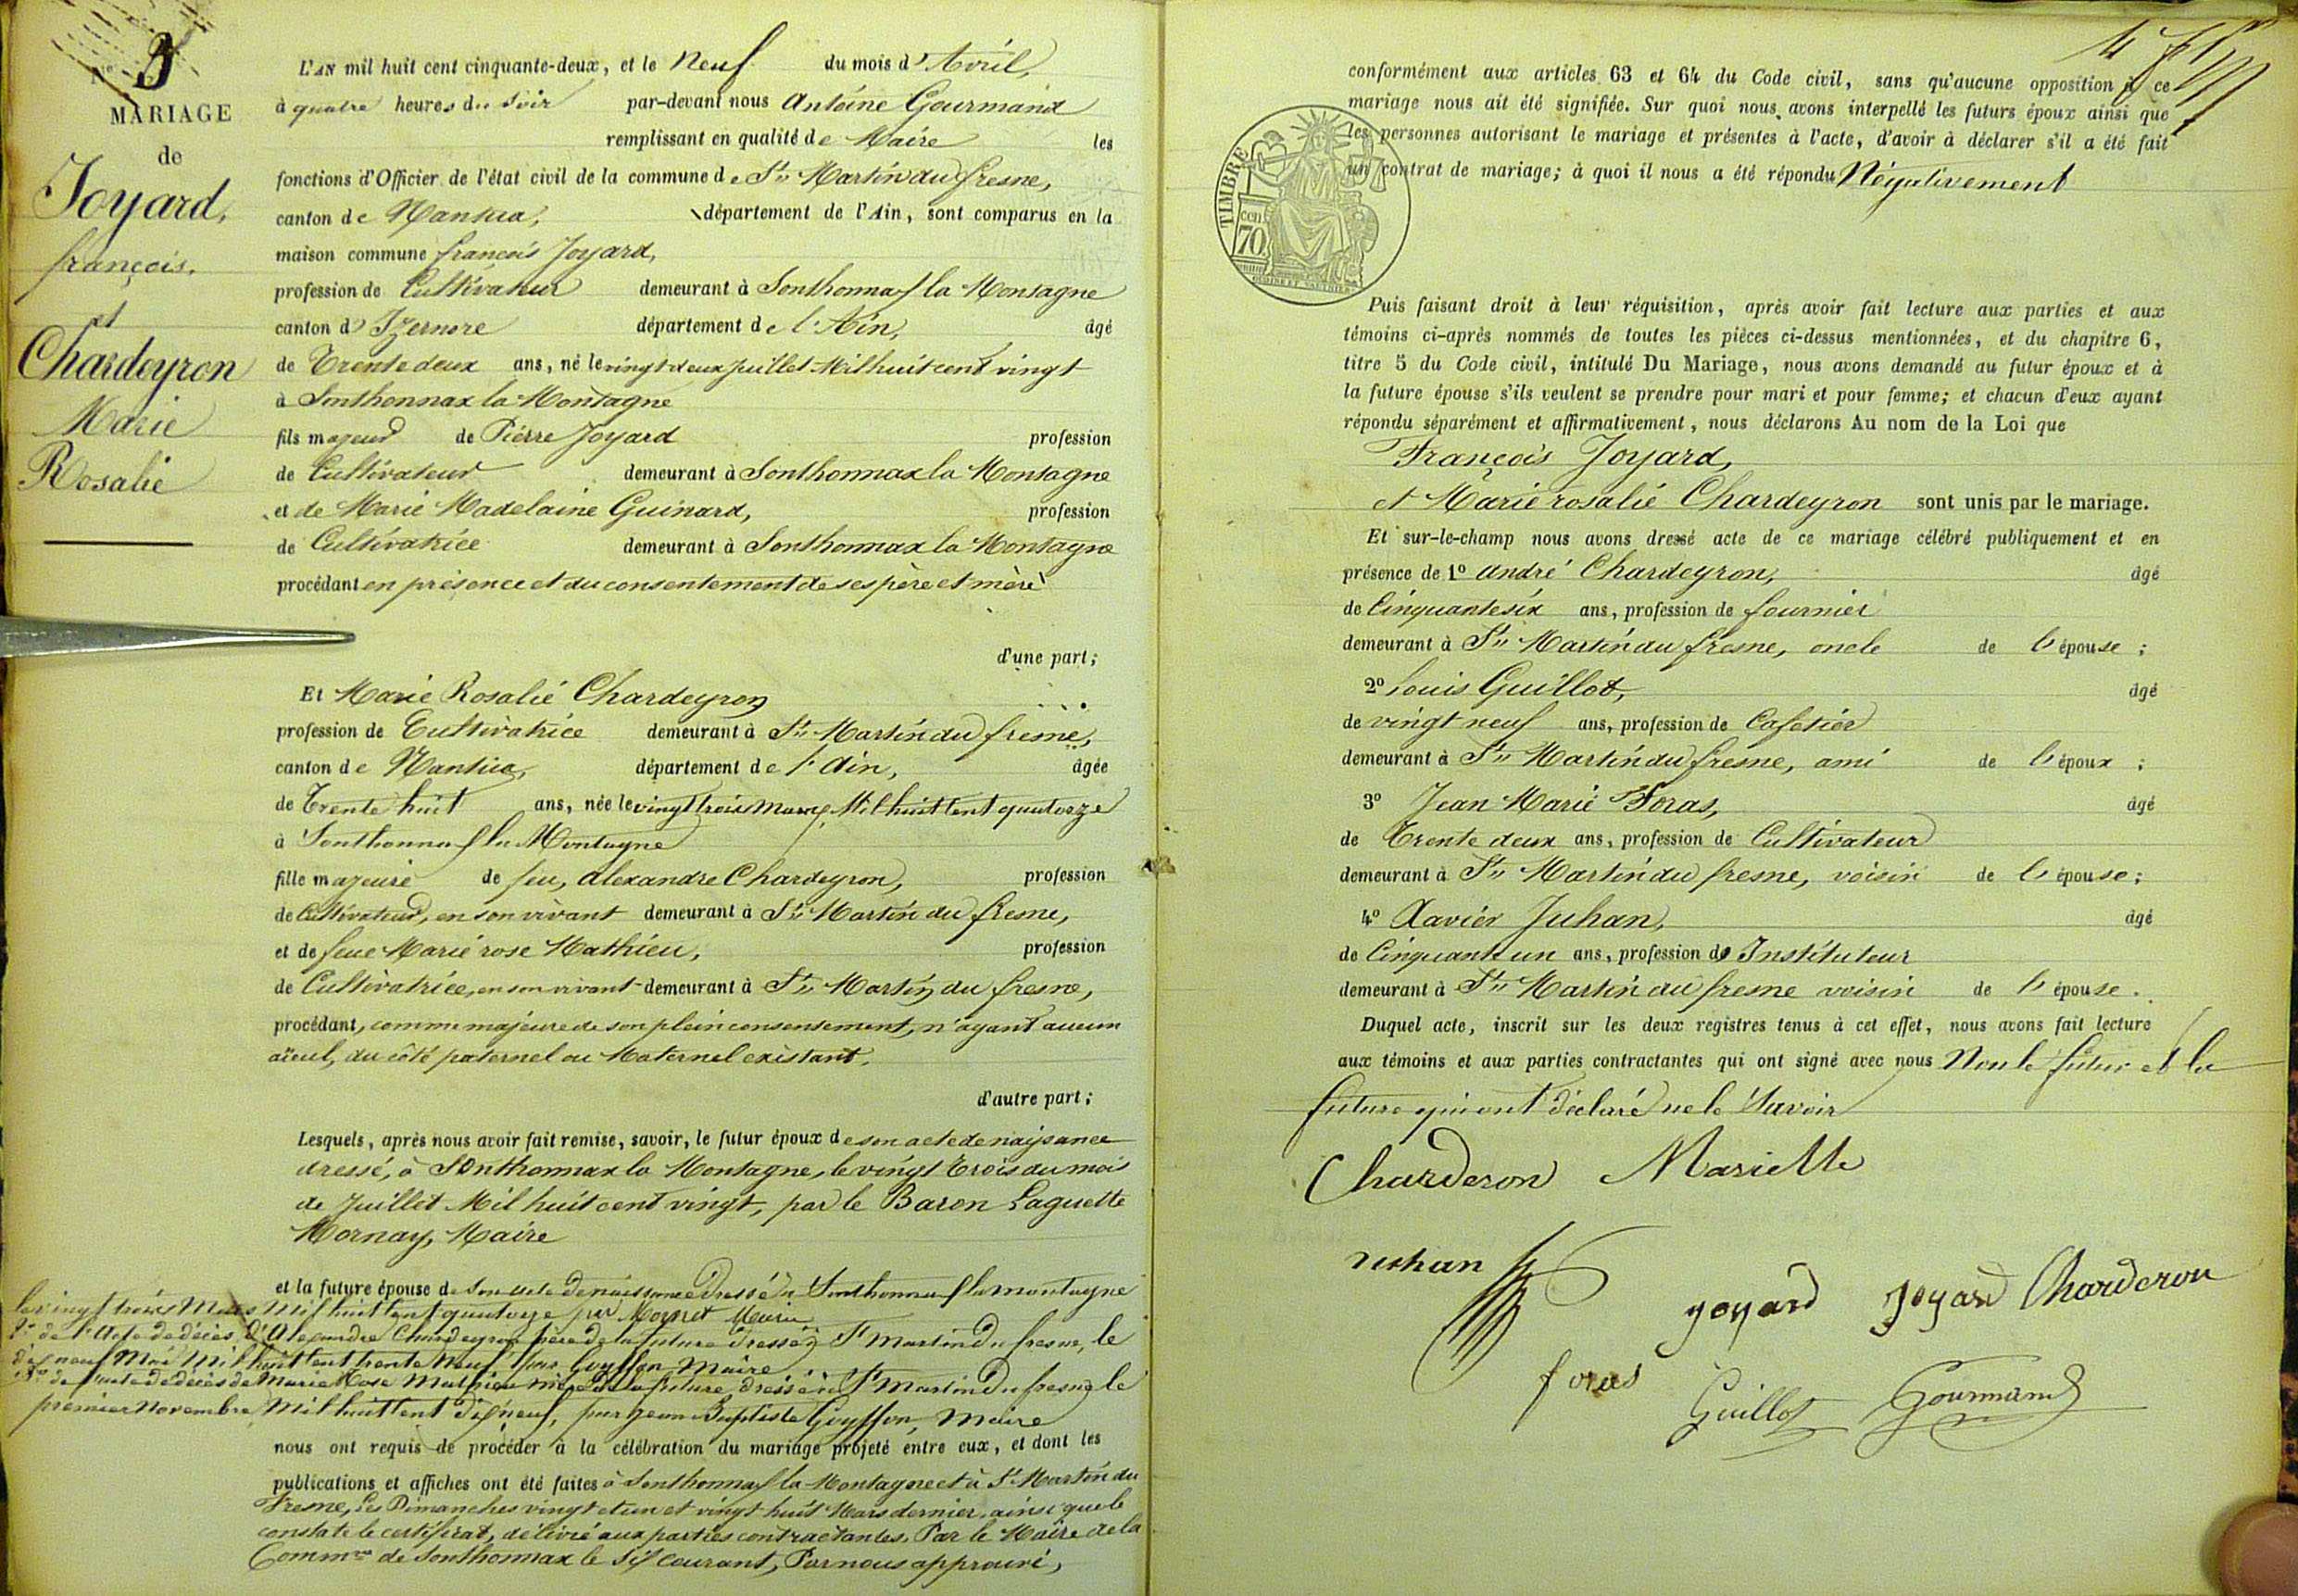 Nº 3
MARIAGE
de
Joyard,
françois.
et
Chardeyron
Marie
Rosalie
L'AN mil huit cent cinquante-deux, et le Neuf du mois d'Avril,
à quatre heures du soir par-devant nous Antoine Gourmand
remplissant en qualité de Maire les
fonctions d'Officier de l'état civil de la commune de St Martin du fresne,
canton de Nantua, département de l'Ain, sont comparus en la
maison commune françois Joyard,
profession de Cultivateur demeurant à Sonthonnax la Montagne
canton d'Izernore département de l'Ain, âgé
de Trente deux ans, né le vingt deux Juillet Mil huit cent vingt
à Sonthonnax la Montagne
fils majeur de Pierre Joyard profession
de Cultivateur demeurant à Sonthonnax la Montagne
et de Marie Madelaine Guinard, profession
de Cultivatrice demeurant à Sonthonnax la Montagne
procédant en présence et du consentement de ses père et mère
d'une part;
Et Marie Rosalie Chardeyron
profession de Cultivatrice demeurant à St Martin du fresne,
canton de Nantua, département de l'Ain, âgée
de Trente huit ans, née le vingt trois mars Mil huit cent quatorze
à Sonthonnax la Montagne
fille majeure de feu, Alexandre Chardeyron, profession
de Cultivateur, en son vivant demeurant à St Martin du fresne,
et de feue Marie rose Mathieu, profession
de Cultivatrice, en son vivant demeurant à St Martin du fresne,
procédant, comme majeure de son plein consentement, n'ayant aucun
aïeul, du côté paternel ou Maternel existant.
d'autre part;
Lesquels, après nous avoir fait remise, savoir, le futur époux de son acte de naissance
dressé, à Sonthonnax la Montagne, le vingt Trois du mois
de Juillet Mil huit cent vingt, par le Baron Laguette
Mornay, Maire
et la future épouse de son acte de naissance dressé à Sonthonnax la montagne
le vingt trois Mars Mil huit cent quatorze par Maire
2º de l'Acte de décès d'Alexandre Chardeyron père de la future dressé à St Martin du fresne, le
dix neuf Mai Mil huit cent trente Neuf par Goyffon Maire
3º de l'acte de décès de Marie Rose Mathieu mère de la future dressé à St Martin du fresne le
premier Novembre Mil huit cent dix neuf, par Jean Baptiste Goyffon, Maire
nous ont requis de procéder à la célébration du mariage projeté entre eux, et dont les
publications et affiches ont été faites à Sonthonnax la Montagne et à St Martin du
Fresne, les Dimanches vingt et un et vingt huit Mars dernier, ainsi que le
constate le certificat, délivré aux parties contractantes. Par le Maire de la
Commne de Sonthonnax le six courant, Par nous approuvé,
conformément aux articles 63 et 64 du Code civil, sans qu'aucune opposition à ce
mariage nous ait été signifiée. Sur quoi nous avons interpellé les futurs époux ainsi que
les personnes autorisant le mariage et présentes à l'acte, d'avoir à déclarer s'il a été fait
un contrat de mariage; à quoi il nous a été répondu Négativement
TIMBRE
70
Puis faisant droit à leur réquisition, après avoir fait lecture aux parties et aux
témoins ci-après nommés de toutes les pièces ci-dessus mentionnées, et du chapitre 6,
titre 5 du Code civil, intitulé Du Mariage, nous avons demandé au futur époux et à
la future épouse s'ils veulent se prendre pour mari et pour femme; et chacun d'eux ayant
répondu séparément et affirmativement, nous déclarons Au nom de la Loi que
François Joyard,
et Marie rosalie Chardeyron sont unis par le mariage.
Et sur-le-champ nous avons dressé acte de ce mariage célébré publiquement et en
présence de 1º André Chardeyron, âgé
de Cinquante six ans, profession de fournier
demeurant à St Martin du fresne, oncle de l'épouse;
2º Louis Guillot, âgé
de vingt neuf ans, profession de Cafetier
demeurant à St Martin du fresne, ami de l'époux;
3º Jean Marie Foras, âgé
de Trente deux ans, profession de Cultivateur
demeurant à St Martin du fresne, voisin de l'épouse;
4º Xavier Juhan, âgé
de Cinquante un ans, profession de Instituteur
demeurant à St Martin du fresne voisin de l'épouse.
Duquel acte, inscrit sur les deux registres tenus à cet effet, nous avons fait lecture
aux témoins et aux parties contractantes qui ont signé avec nous Non le futur et la
future qui ont déclaré ne le Savoir
Charderon Mariette
Juhan
joyard joyard Charderon
foras Guillot Gourmand